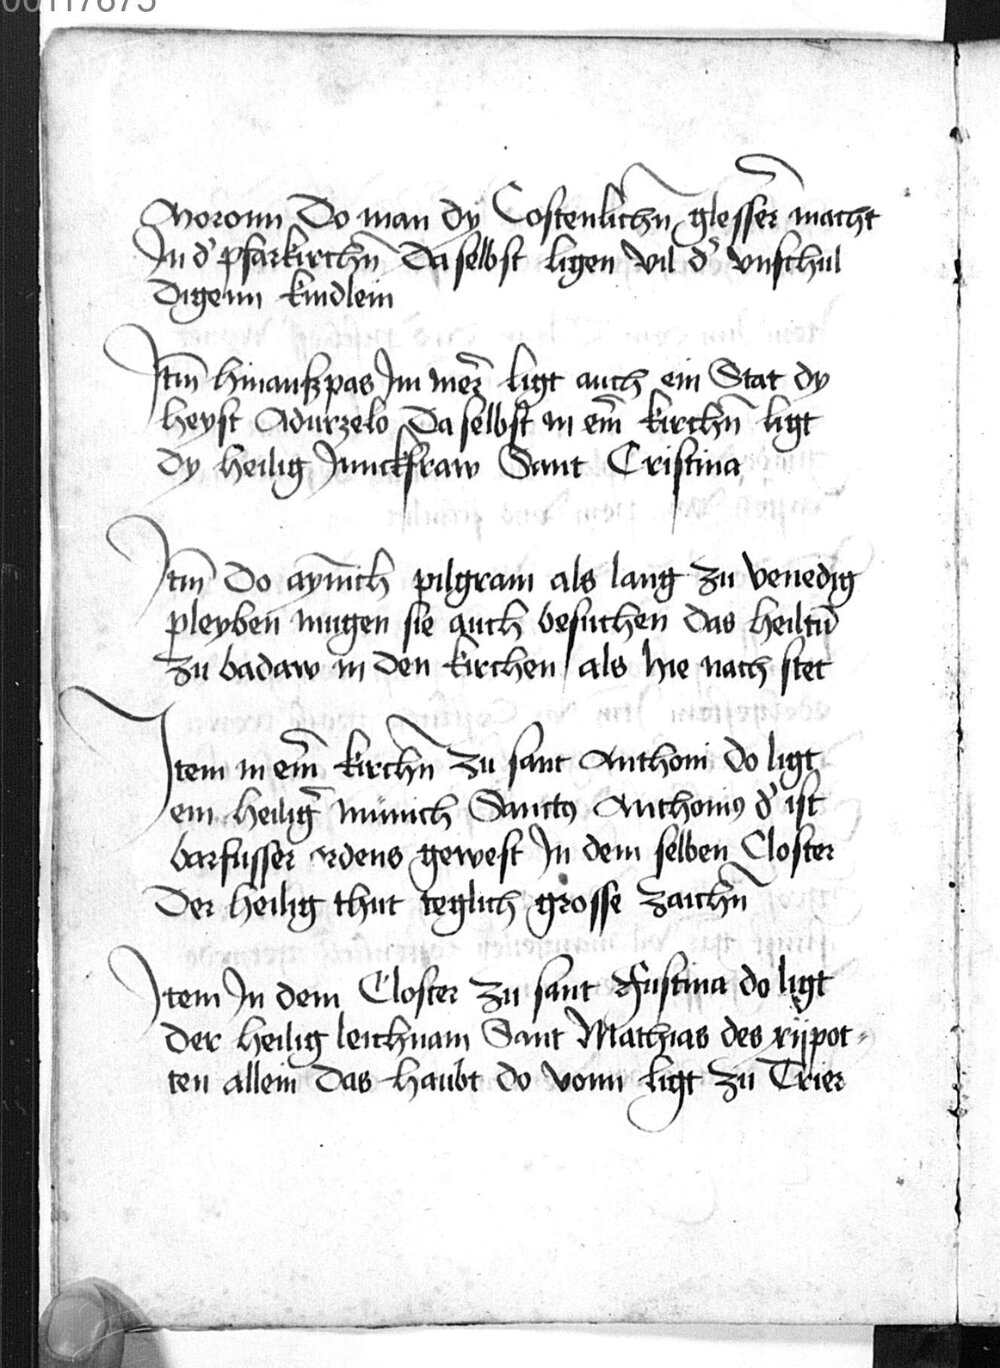 00117675
Moronn Do man dy Costenlichn̄ glesser̄ macht
In d' pfarkirchn̄ Da selbst ligen vil d' vnschul
digenn kindlein
Itm̄ hinaußpas Im mer̄ ligt auch ein Stat dy
heyst Adurzelo Da selbst in em̄ kirchn̄ ligt
dy heilig Junckfraw Sant Cristina
Itm̄ Do aym̄ch pilgram als lang zu venedig
pleyben mugen sie auch besuchen das heiltū
zu badaw in den kirchen / als hie nach stet
Item in em̄ kirchn̄ zu sant Anthoni do ligt
ein heilig' münich Sanctꝰ Anthoniꝰ d' ist
barfusser ordens gewest In dem selben Closter
Der heilig thut teglich grosse zaichn̄
Item In dem Closter zu sant Justina do ligt
der heilig leichnam Sant Mathias des xijpot-
ten allein das haubt do vonn ligt zu Trier